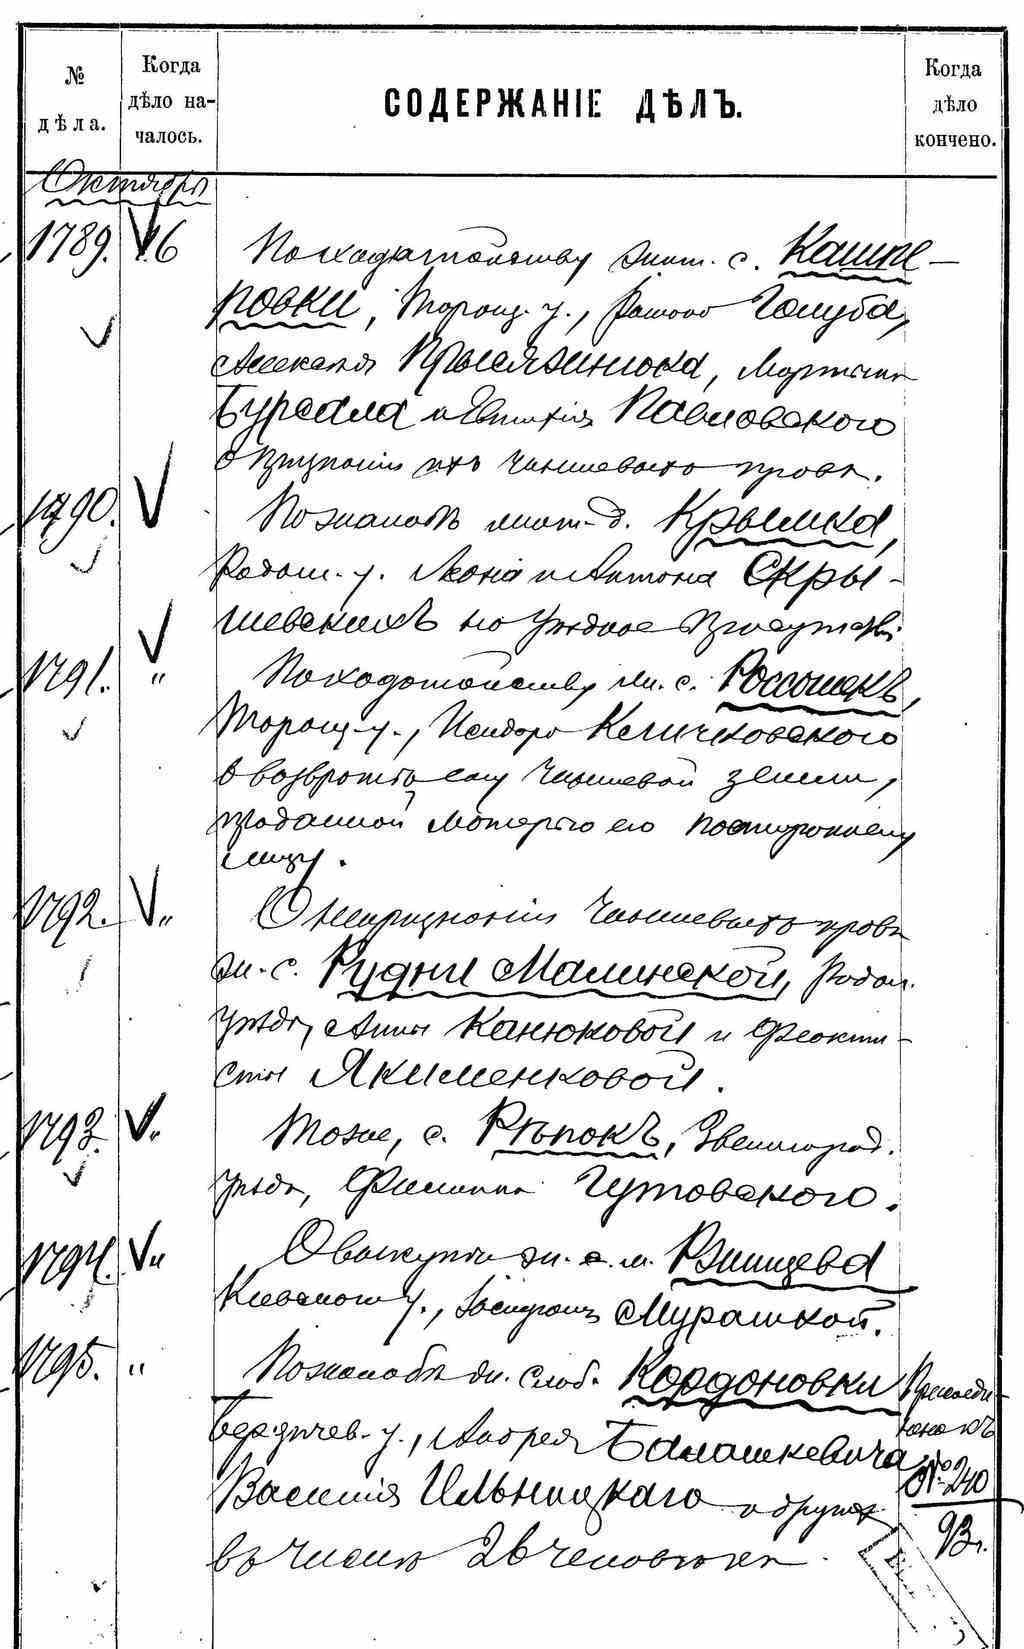 № дѣла.
Когда дѣло началось.
СОДЕРЖАНІЕ ДѢЛЪ.
Когда дѣло кончено.
Октябрь
1789. 16 По ходатайству жит. с. Кашпе-
ровки, Таращ. у., Голуба,
Алексѣя Мартына
Бурсала и Евтихія Павловскаго
о признаніи ихъ чиншеваго права.
1790. По жалобѣ жит. д. Крымка,
Радом. у. Леона и Антона Скры-
шевскихъ на Уѣздное Присутствіе
1791. " По ходатайству жи. с. Россошекъ,
Таращ. у., Исидора Кличковскаго
о возвратѣ ему чиншевой земли,
проданной матерью его постороннему
лицу.
1792. " О непризнаніи чиншеваго права
жи. с. Рудни Малинской, Радом.
уѣзда, Анны Канюковой и Феокти-
сты Якименковой.
1793. " Тоже, с. Рѣпокъ, Звенигород.
уѣзда, Филиппа Гутовскаго.
1794. " О выкупѣ жи. м. Ржищева
Кіевскаго у., Мурашкой.
1795. " По жалобѣ жи. слоб. Кордоновки
Бердичев. у., Андрея Балашкевича
Василія Ильницкаго и другихъ
въ числѣ 26 человѣкъ.
Присоеди-
нено къ
№ 240
93 г.